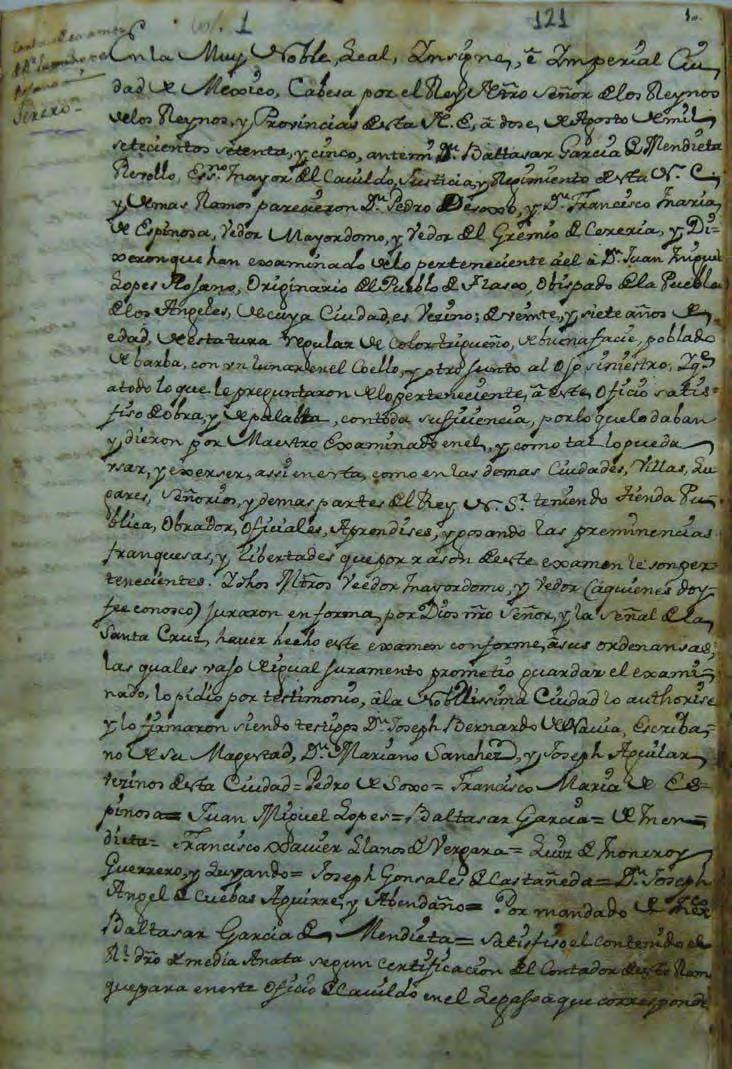 1 121
Carta de examen
Serero
En la Muy Noble, Leal, Insigne, é Imperial Ciu
dad de Mexico, Cabesa por el Rey Ntro Señor de los Reynos
de los Reynos, y Provincias de esta N. E., á dose, de Agosto de mil
setecientos setenta, y cinco, antemi Dn. Baltasar Garcia de Mendieta
Rebollo, Essno. mayor del Cavildo, Justicia, y Regimiento de esta N. C.
y demas Ramos parecieron Dn. Pedro de Soxo, y Dn. Francisco Maria
de Espinosa, Vedor Mayordomo, y Vedor del Gremio de Cereria, y Di=
xeron que han examinado de lo perteneciente á el á Dn. Juan Miguel
Lopes Rosano, Originario del Pueblo de Tlasco, Obispado de la Puebla
de los Angeles, de cuya Ciudad, es Vezino; de veinte, y siete años de
edad, de estatura regular de Color trigueño, de buena facie, poblado
de barba, con un lunar en el Coello, y otro junto al Ojo siniestro, Y qe.
a todo lo que le preguntaron de lo perteneciente, á este, Oficio satis=
fiso de obra, y de palabra, con toda suficiencia, por lo que lo daban
y dieron por Maestro Examinado en el, y como tal lo pueda
usar, y exerser, assi en esta, como en las demas Ciudades, Villas, Lu
gares, Señorios, y demas partes del Rey N. Sr. teniendo tienda Pu
blica, Obrador, Oficiales, Aprendises, y gosando las preminencias
franquesas, y libertades que por rason de este examen le son per
tenecientes. Y dhos Mtros Veedor mayordomo, y Vedor (áquienes doy
fee conosco) juraron en forma, por Dios nro Señor, y la señal de la
Santa Cruz, haver hecho este examen conforme, á sus ordenansas,
las quales vaso de igual juramento prometio guardar el exami
nado, lo pidio por testimonio, á la Nobilissima Ciudad lo authorise
y lo firmaron siendo testigos Dn. Joseph Bernardo de Navia, Escriba,
no de Su Magestad, Dn. Mariano Sanchez, y Joseph Aguilar
vezinos de esta Ciudad = Pedro de Soxo = Francisco Maria de Es=
pinosa = Juan Miguel Lopes = Baltasar Garcia = de Men=
dieta = Francisco Xavier Llanos de Vergara = Luiz de Monrroy
Guerrero, y Luyando = Joseph Gonsales de Castañeda = Dn. Joseph
Angel de Cuebas Aguirre, y Abendaño = Por mandado de Mexco.
Baltasar Garcia de Mendieta = Satisfiso el contenido el
Rl. dro de media Anata segun certificacion del Contador de este Ram
que para en este Oficio de Cavildo en el Legajo á que corresponde